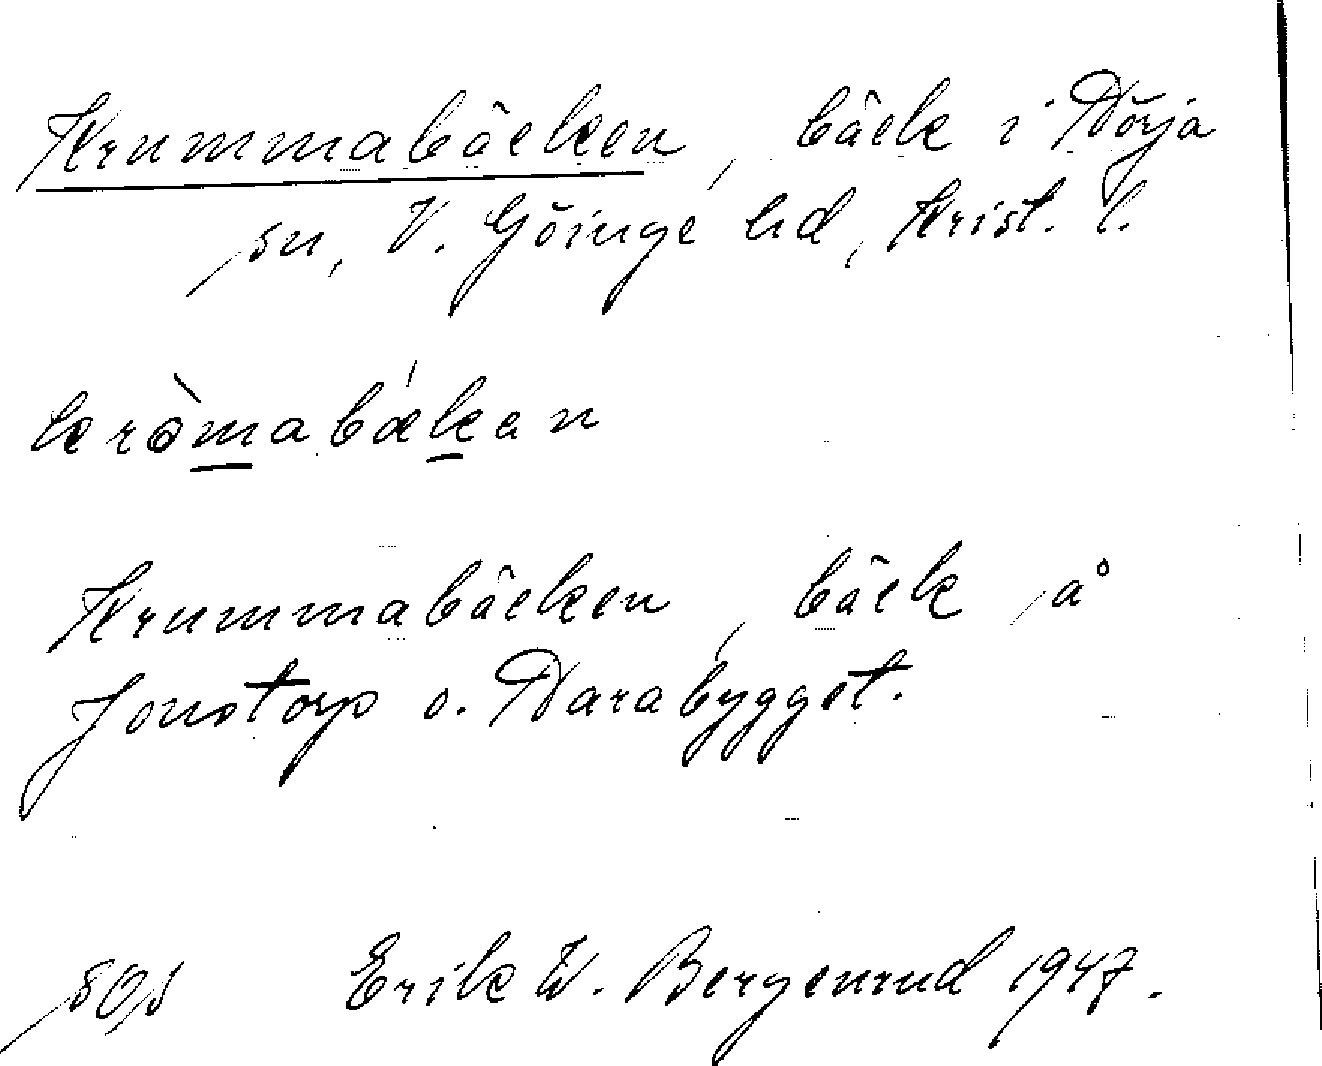 Krummabäcken, bäck i Hörja
sn, V. Göinge hd, Krist. l.
kròmabækan
Krummabäcken, bäck å
Jonstorp o. Harabygget.
Erik W. Bergenrud 1947.